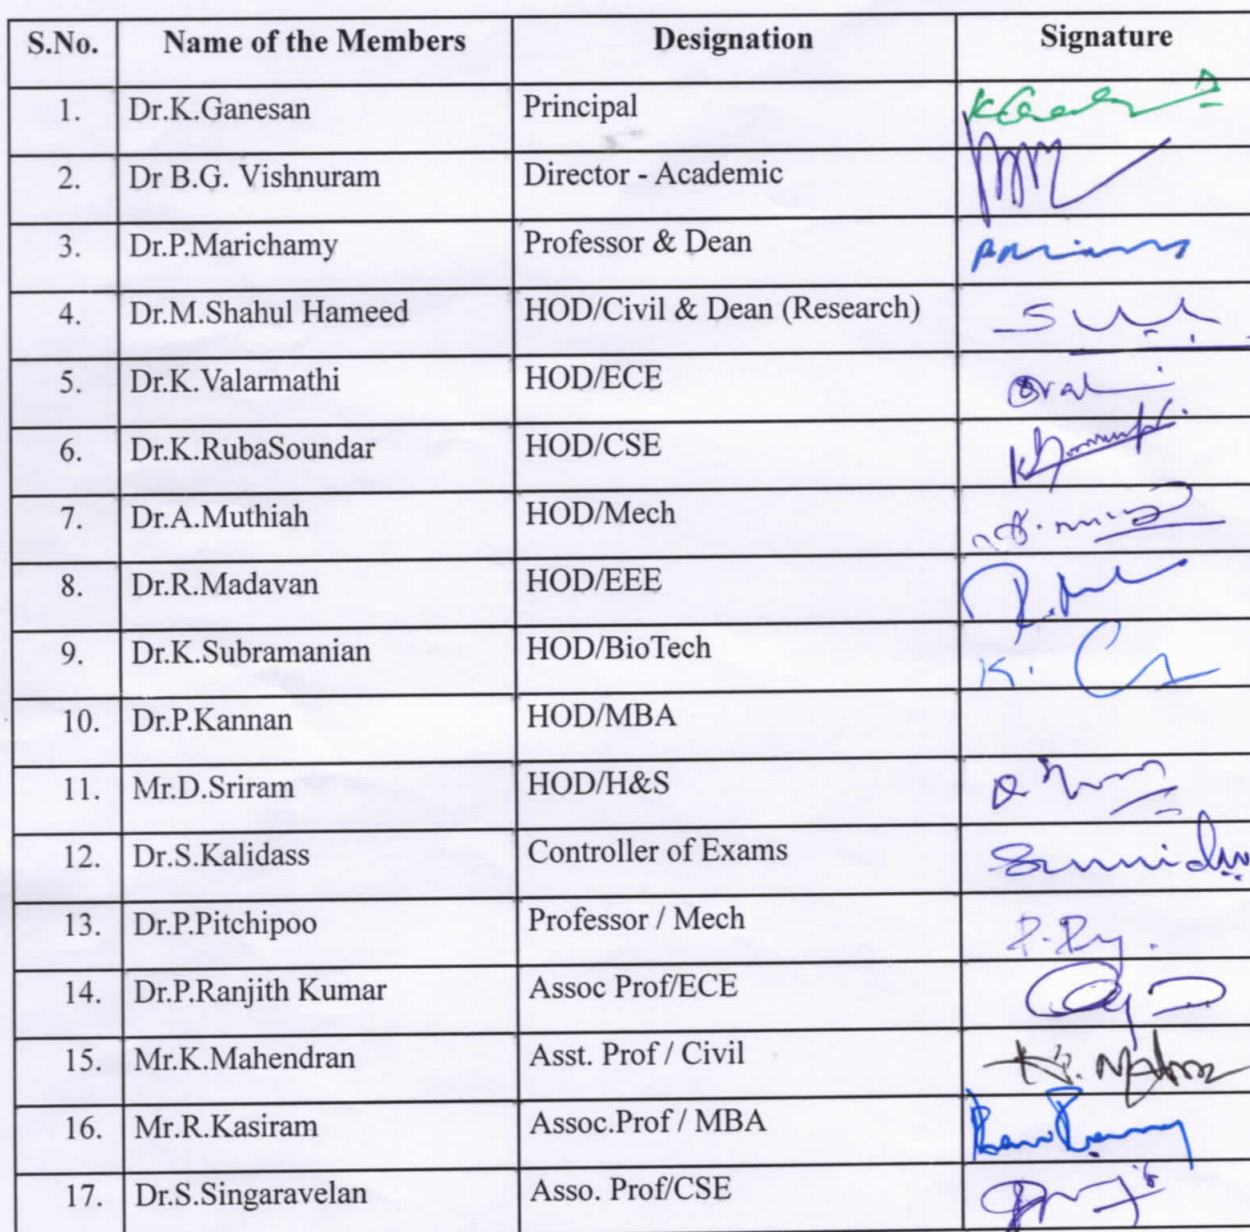 S.No. Name of the Members Designation Signature
1. Dr.K.Ganesan Principal
2. Dr B.G. Vishnuram Director - Academic
3. Dr.P.Marichamy Professor & Dean
4. Dr.M.Shahul Hameed HOD/Civil & Dean (Research)
5. Dr.K.Valarmathi HOD/ECE
6. Dr.K.RubaSoundar HOD/CSE
7. Dr.A.Muthiah HOD/Mech
8. Dr.R.Madavan HOD/EEE
9. Dr.K.Subramanian HOD/BioTech
10. Dr.P.Kannan HOD/MBA
11. Mr.D.Sriram HOD/H&S
12. Dr.S.Kalidass Controller of Exams
13. Dr.P.Pitchipoo Professor / Mech
14. Dr.P.Ranjith Kumar Assoc Prof/ECE
15. Mr.K.Mahendran Asst. Prof / Civil
16. Mr.R.Kasiram Assoc.Prof / MBA
17. Dr.S.Singaravelan Asso. Prof/CSE